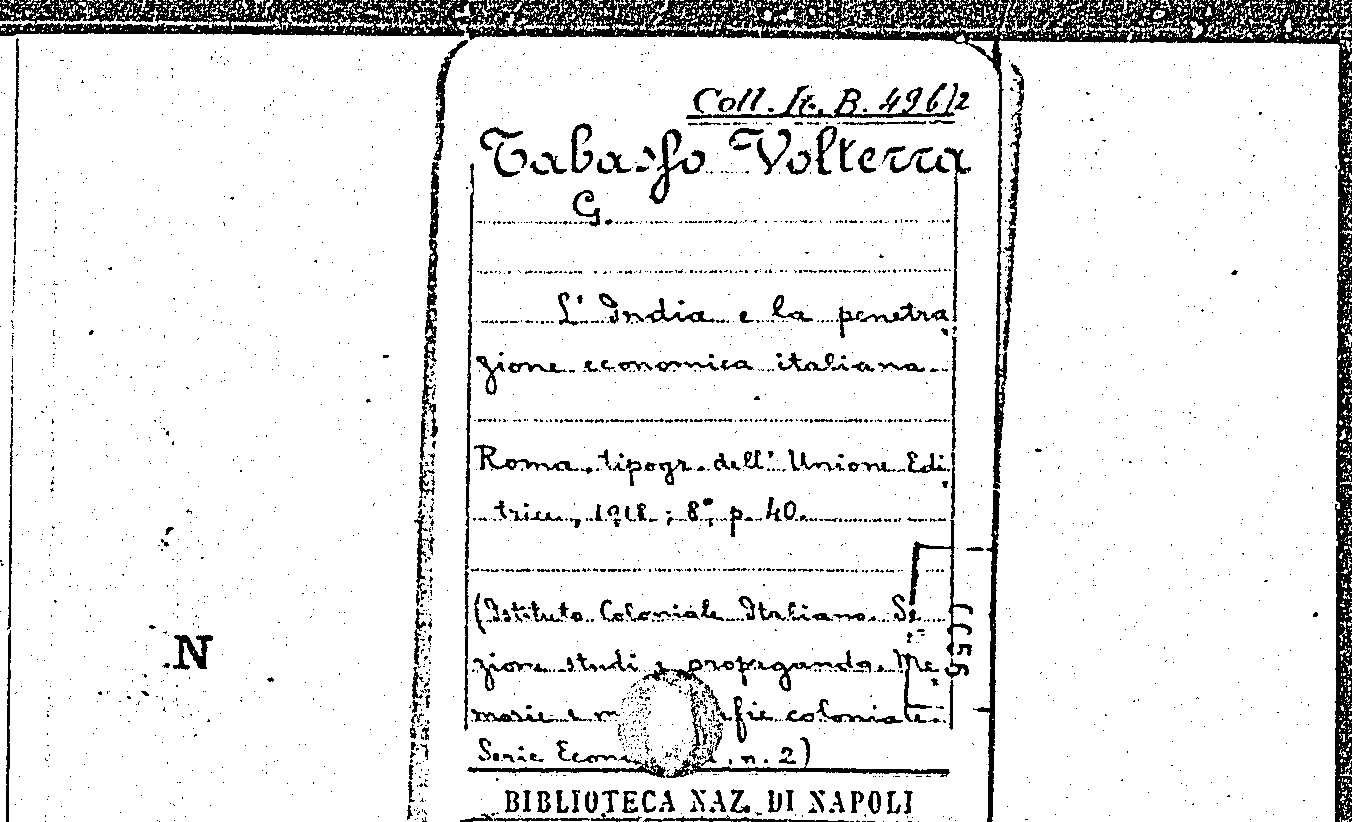 Coll. It. B. 496/2
Tabasso Volterra
G.
L' India e la penetra
zione economica italiana.
Roma, tipogr. dell' Unione Edi
trice, 1918; 8°, p. 40.
(Istituto Coloniale Italiano. Se
zione studi e propaganda. Me
morie e coloniali.
Serie n. 2)
N
BIBLIOTECA NAZ. DI NAPOLI